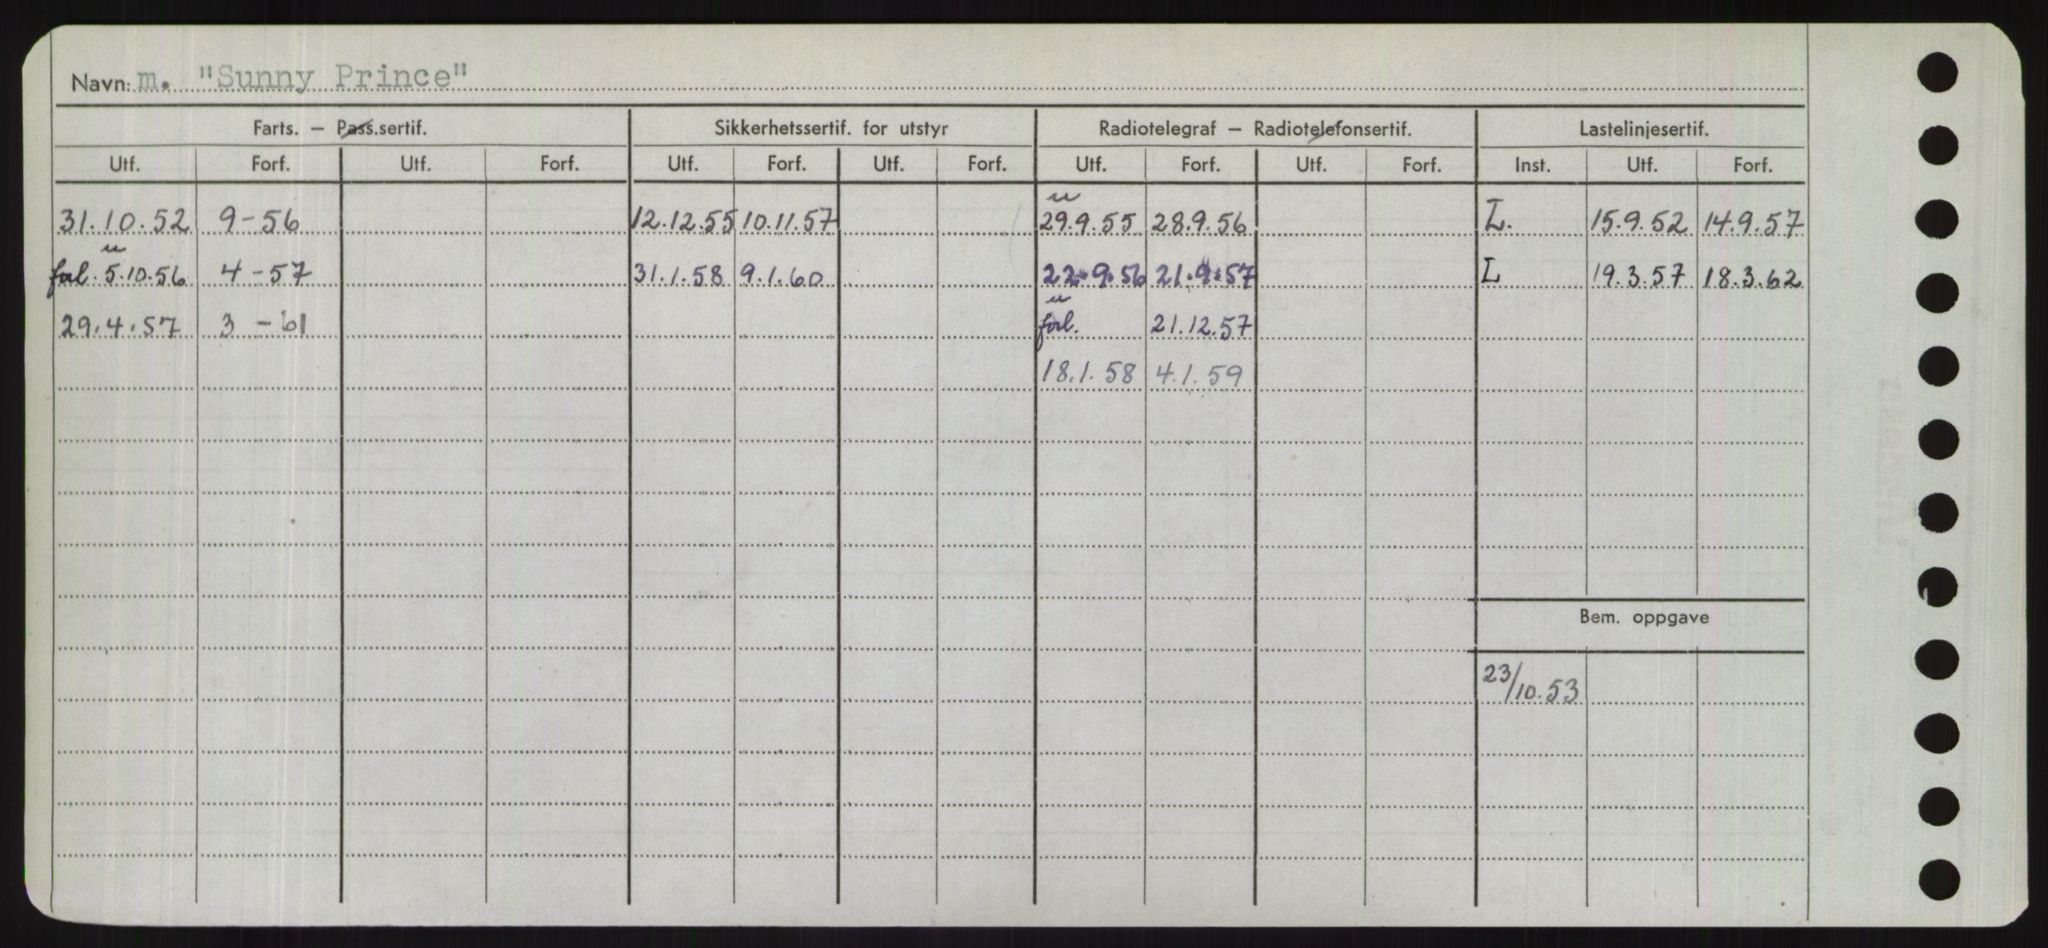 Navn: m. "Sunny Prince"
Farts. – Pass.sertif. Sikkerhetssertif. for utstyr Radiotelegraf – Radiotelefonsertif. Lastelinjesertif.
Utf. Forf. Utf. Forf. Utf. Forf. Utf. Forf. Utf. Forf. Utf. Forf. Inst. Utf. Forf.
31.10.52 9-56 12.12.55 10.11.57 29.9.55 28.9.56 L. 15.9.52 14.9.57
forl. 5.10.56 4-57 31.1.58 9.1.60 22.9.56 21.9.57 L 19.3.57 18.3.62
29.4.57 3-61 forl. 21.12.57
18.1.58 4.1.59
Bem. oppgave
23/10.53